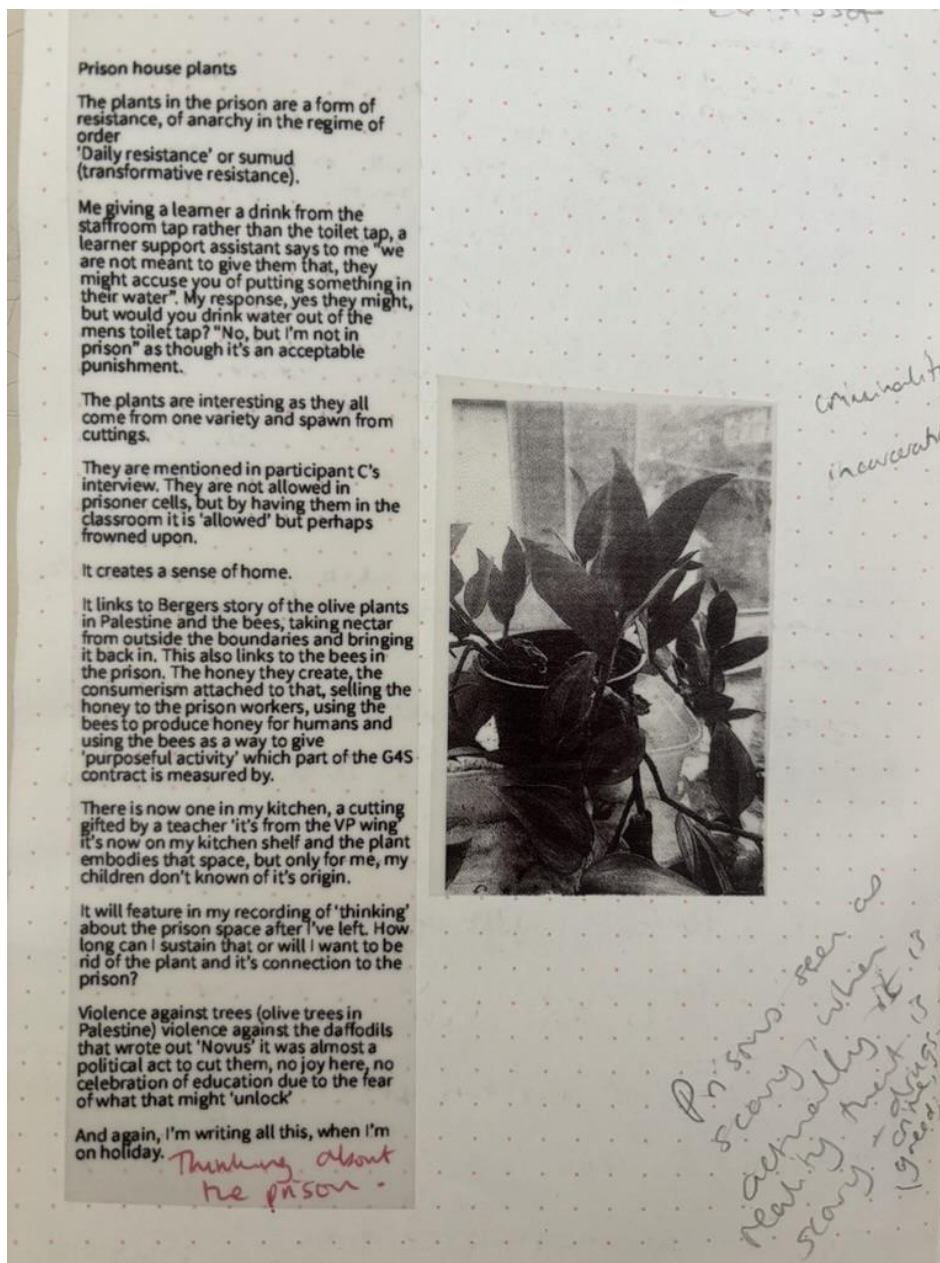 Prison house plants
The plants in the prison are a form of
resistance, of anarchy in the regime of
order
'Daily resistance' or sumud
(transformative resistance).
Me giving a learner a drink from the
staffroom tap rather than the toilet tap, a
learner support assistant says to me "we
are not meant to give them that, they
might accuse you of putting something in
their water". My response, yes they might,
but would you drink water out of the
mens toilet tap? "No, but I'm not in
prison" as though it's an acceptable
punishment.
The plants are interesting as they all
come from one variety and spawn from
cuttings.
They are mentioned in participant C's
interview. They are not allowed in
prisoner cells, but by having them in the
classroom it is 'allowed' but perhaps
frowned upon.
It creates a sense of home.
It links to Bergers story of the olive plants
in Palestine and the bees, taking nectar
from outside the boundaries and bringing
it back in. This also links to the bees in
the prison. The honey they create, the
consumerism attached to that, selling the
honey to the prison workers, using the
bees to produce honey for humans and
using the bees as a way to give
'purposeful activity' which part of the G4S
contract is measured by.
There is now one in my kitchen, a cutting
gifted by a teacher 'it's from the VP wing'
it's now on my kitchen shelf and the plant
embodies that space, but only for me, my
children don't known of it's origin.
It will feature in my recording of 'thinking'
about the prison space after I've left. How
long can I sustain that or will I want to be
rid of the plant and it's connection to the
prison?
Violence against trees (olive trees in
Palestine) violence against the daffodils
that wrote out 'Novus' it was almost a
political act to cut them, no joy here, no
celebration of education due to the fear
of what that might 'unlock'
And again, I'm writing all this, when I'm
on holiday. Thinking about
the prison.
Prisons seen as
scary, when
actually it is
reality that is
scary - drugs,
crime,
greed,